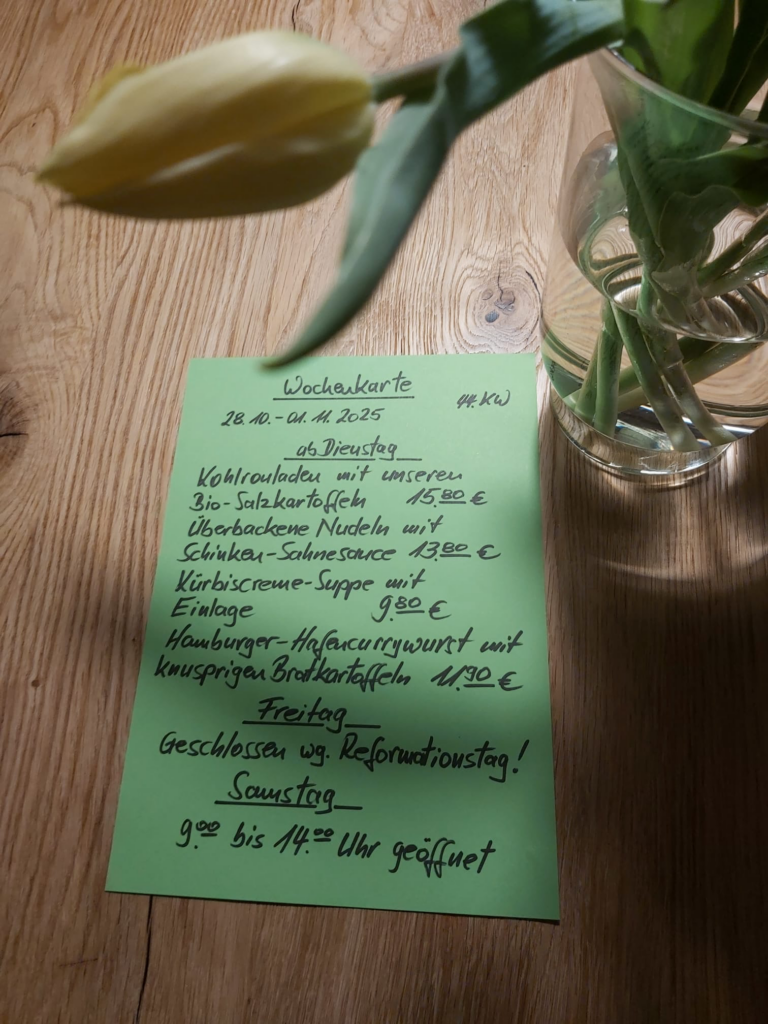 Wochenkarte
28.10. - 01.11.2025 44. KW
ab Dienstag
Kohlrouladen mit unseren
Bio-Salzkartoffeln 15.80 €
Überbackene Nudeln mit
Schinken-Sahnesauce 13.80 €
Kürbiscreme-Suppe mit
Einlage 9.80 €
Hamburger-Hafencurrywurst mit
knusprigen Bratkartoffeln 11.90 €
Freitag
Geschlossen wg. Reformationstag!
Samstag
9.00 bis 14.00 Uhr geöffnet